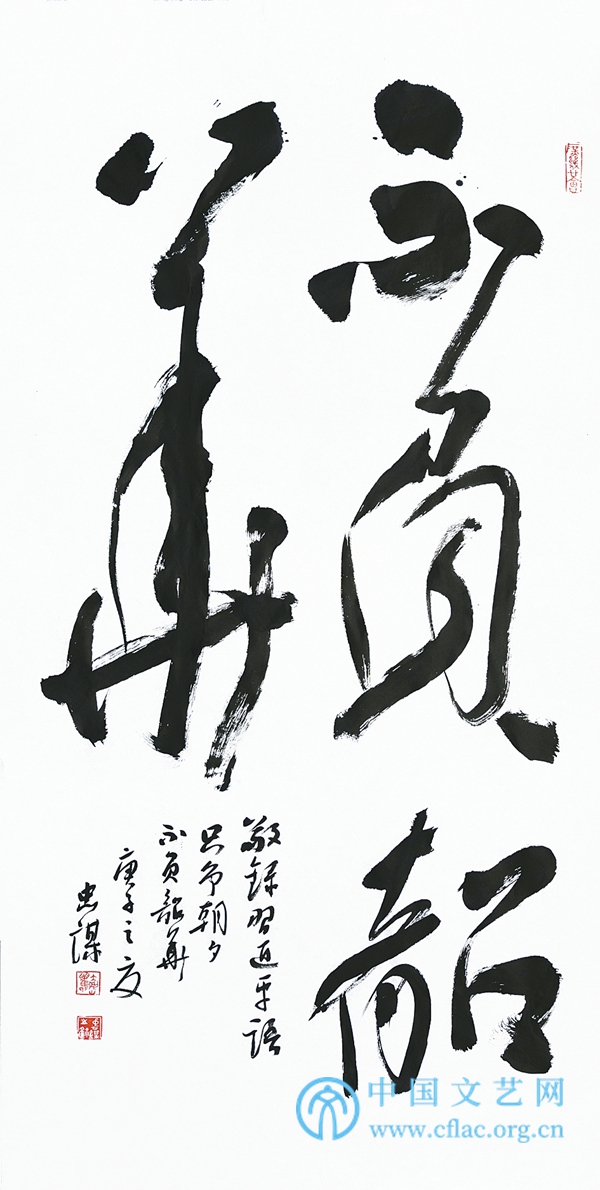 不负韶
华
敬录习近平语
只争朝夕
不负韶华
庚子之夏
忠谋
中国文艺网
www.cflac.org.cn